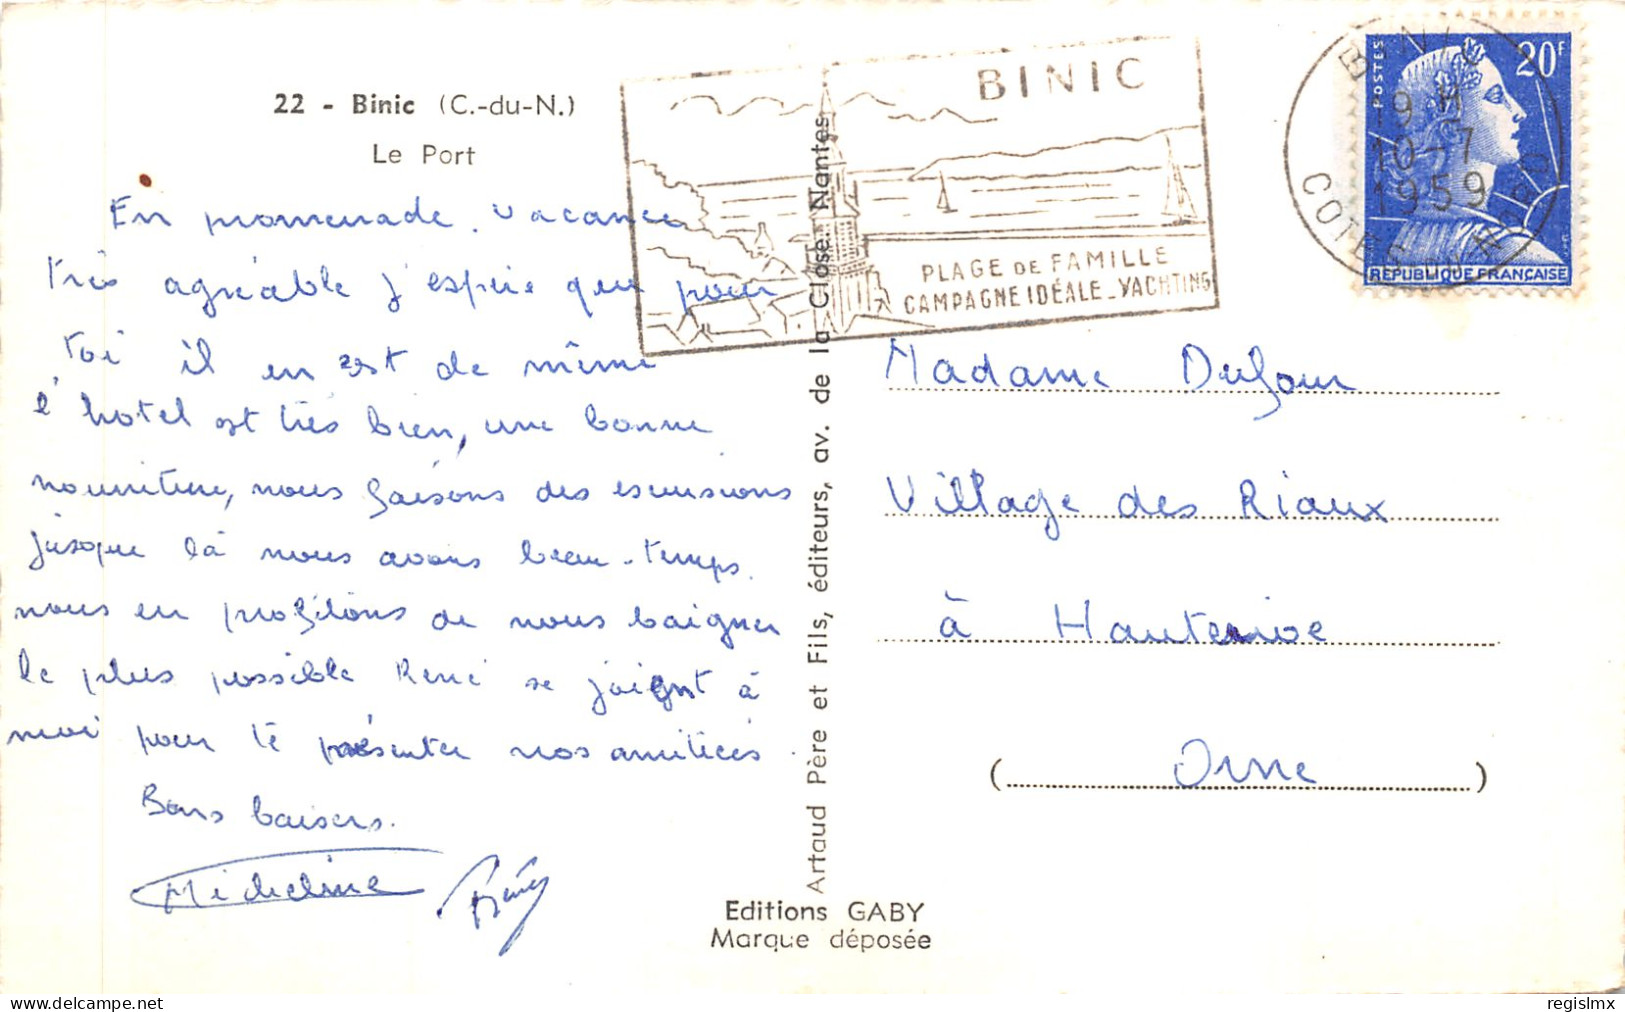 22 - Binic (C.-du-N.)
Le Port
En promenade. Vacances
très agréable j'espère que pour
toi il en est de même
l'hotel est très bien, une bonne
nourriture, nous faisons des escursions
jusque là nous avons beau-temps.
nous en profitons de nous baigner
le plus possible René se joignt à
moi pour te présenter nos amitiées.
Bons baisers.
Micheline René
BINIC
PLAGE DE FAMILLE
CAMPAGNE IDÉALE_YACHTING
BINIC
19 H
10-7
1959
COTES DU NORD
POSTES
20F
REPUBLIQUE FRANÇAISE
Madame Dufour
Village des Riaux
à Hauterive
(Orne)
Artaud Père et Fils, éditeurs, av. de la Close Nantes
Editions GABY
Marque déposée
regislmx